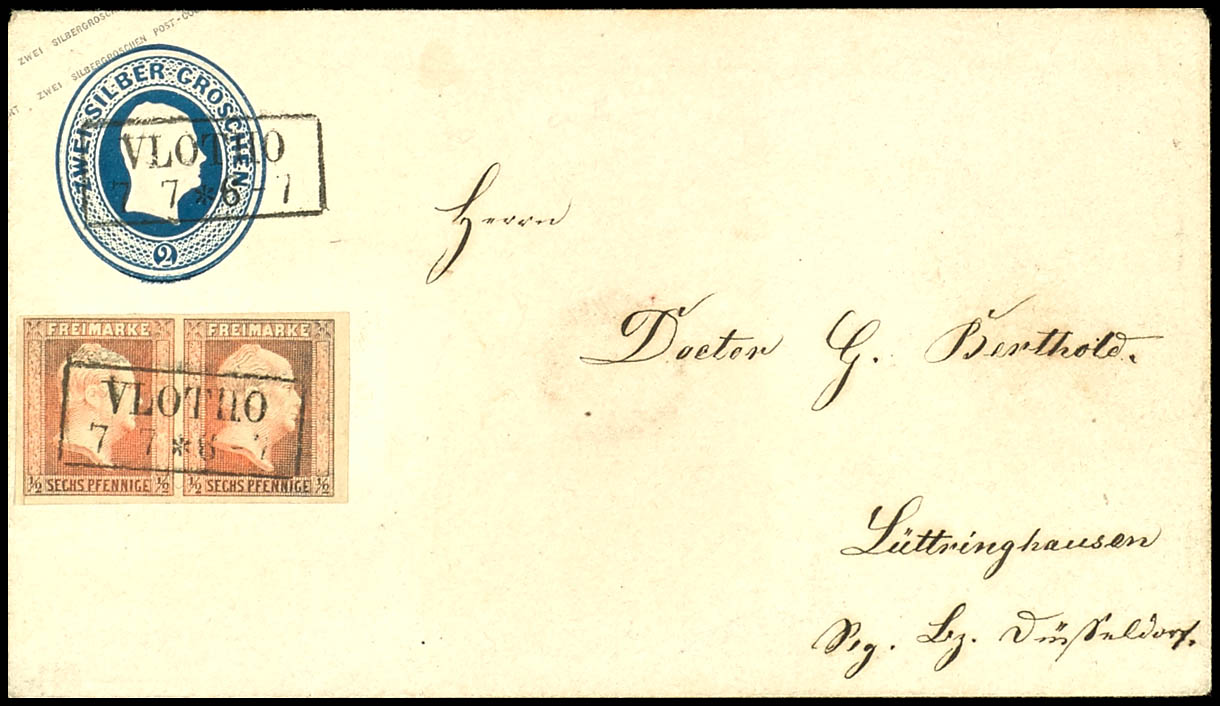 ZWEI SILBERGROSCHEN
ZWEI SILBERGROSCHEN POST-COU
ZWEI SILBER GROSCHEN
2
VLOTHO
7 7 * 6 - 7
FREIMARKE FREIMARKE
VLOTHO
7 7 * 6 - 7
½ SECHS PFENNIGE ½ ½ SECHS PFENNIGE ½
Herrn
Doctor G. Berthold.
Lüttringhausen
Reg. Bz. Düsseldorf.